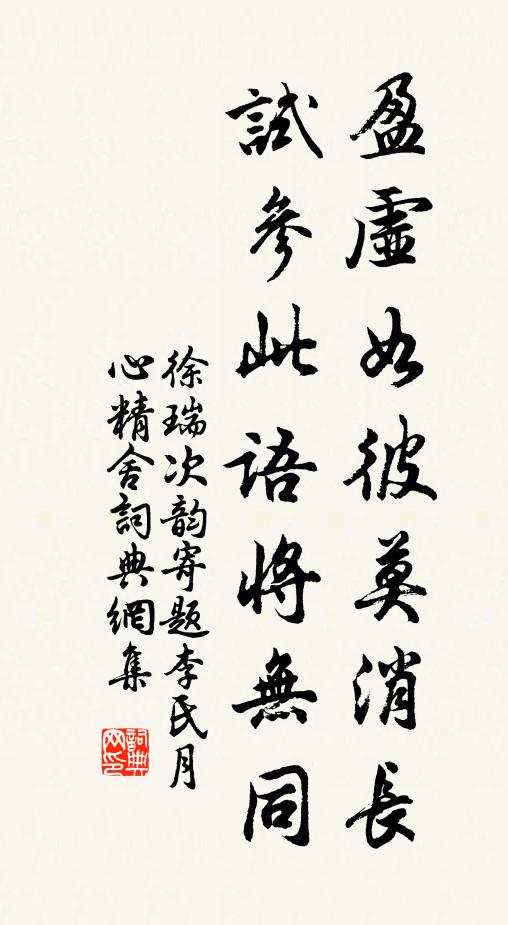 盈虛如彼莫消長
試參此語將無同
徐瑞次韵寄題李氏月
心精舍詞典網集
詞典
网印